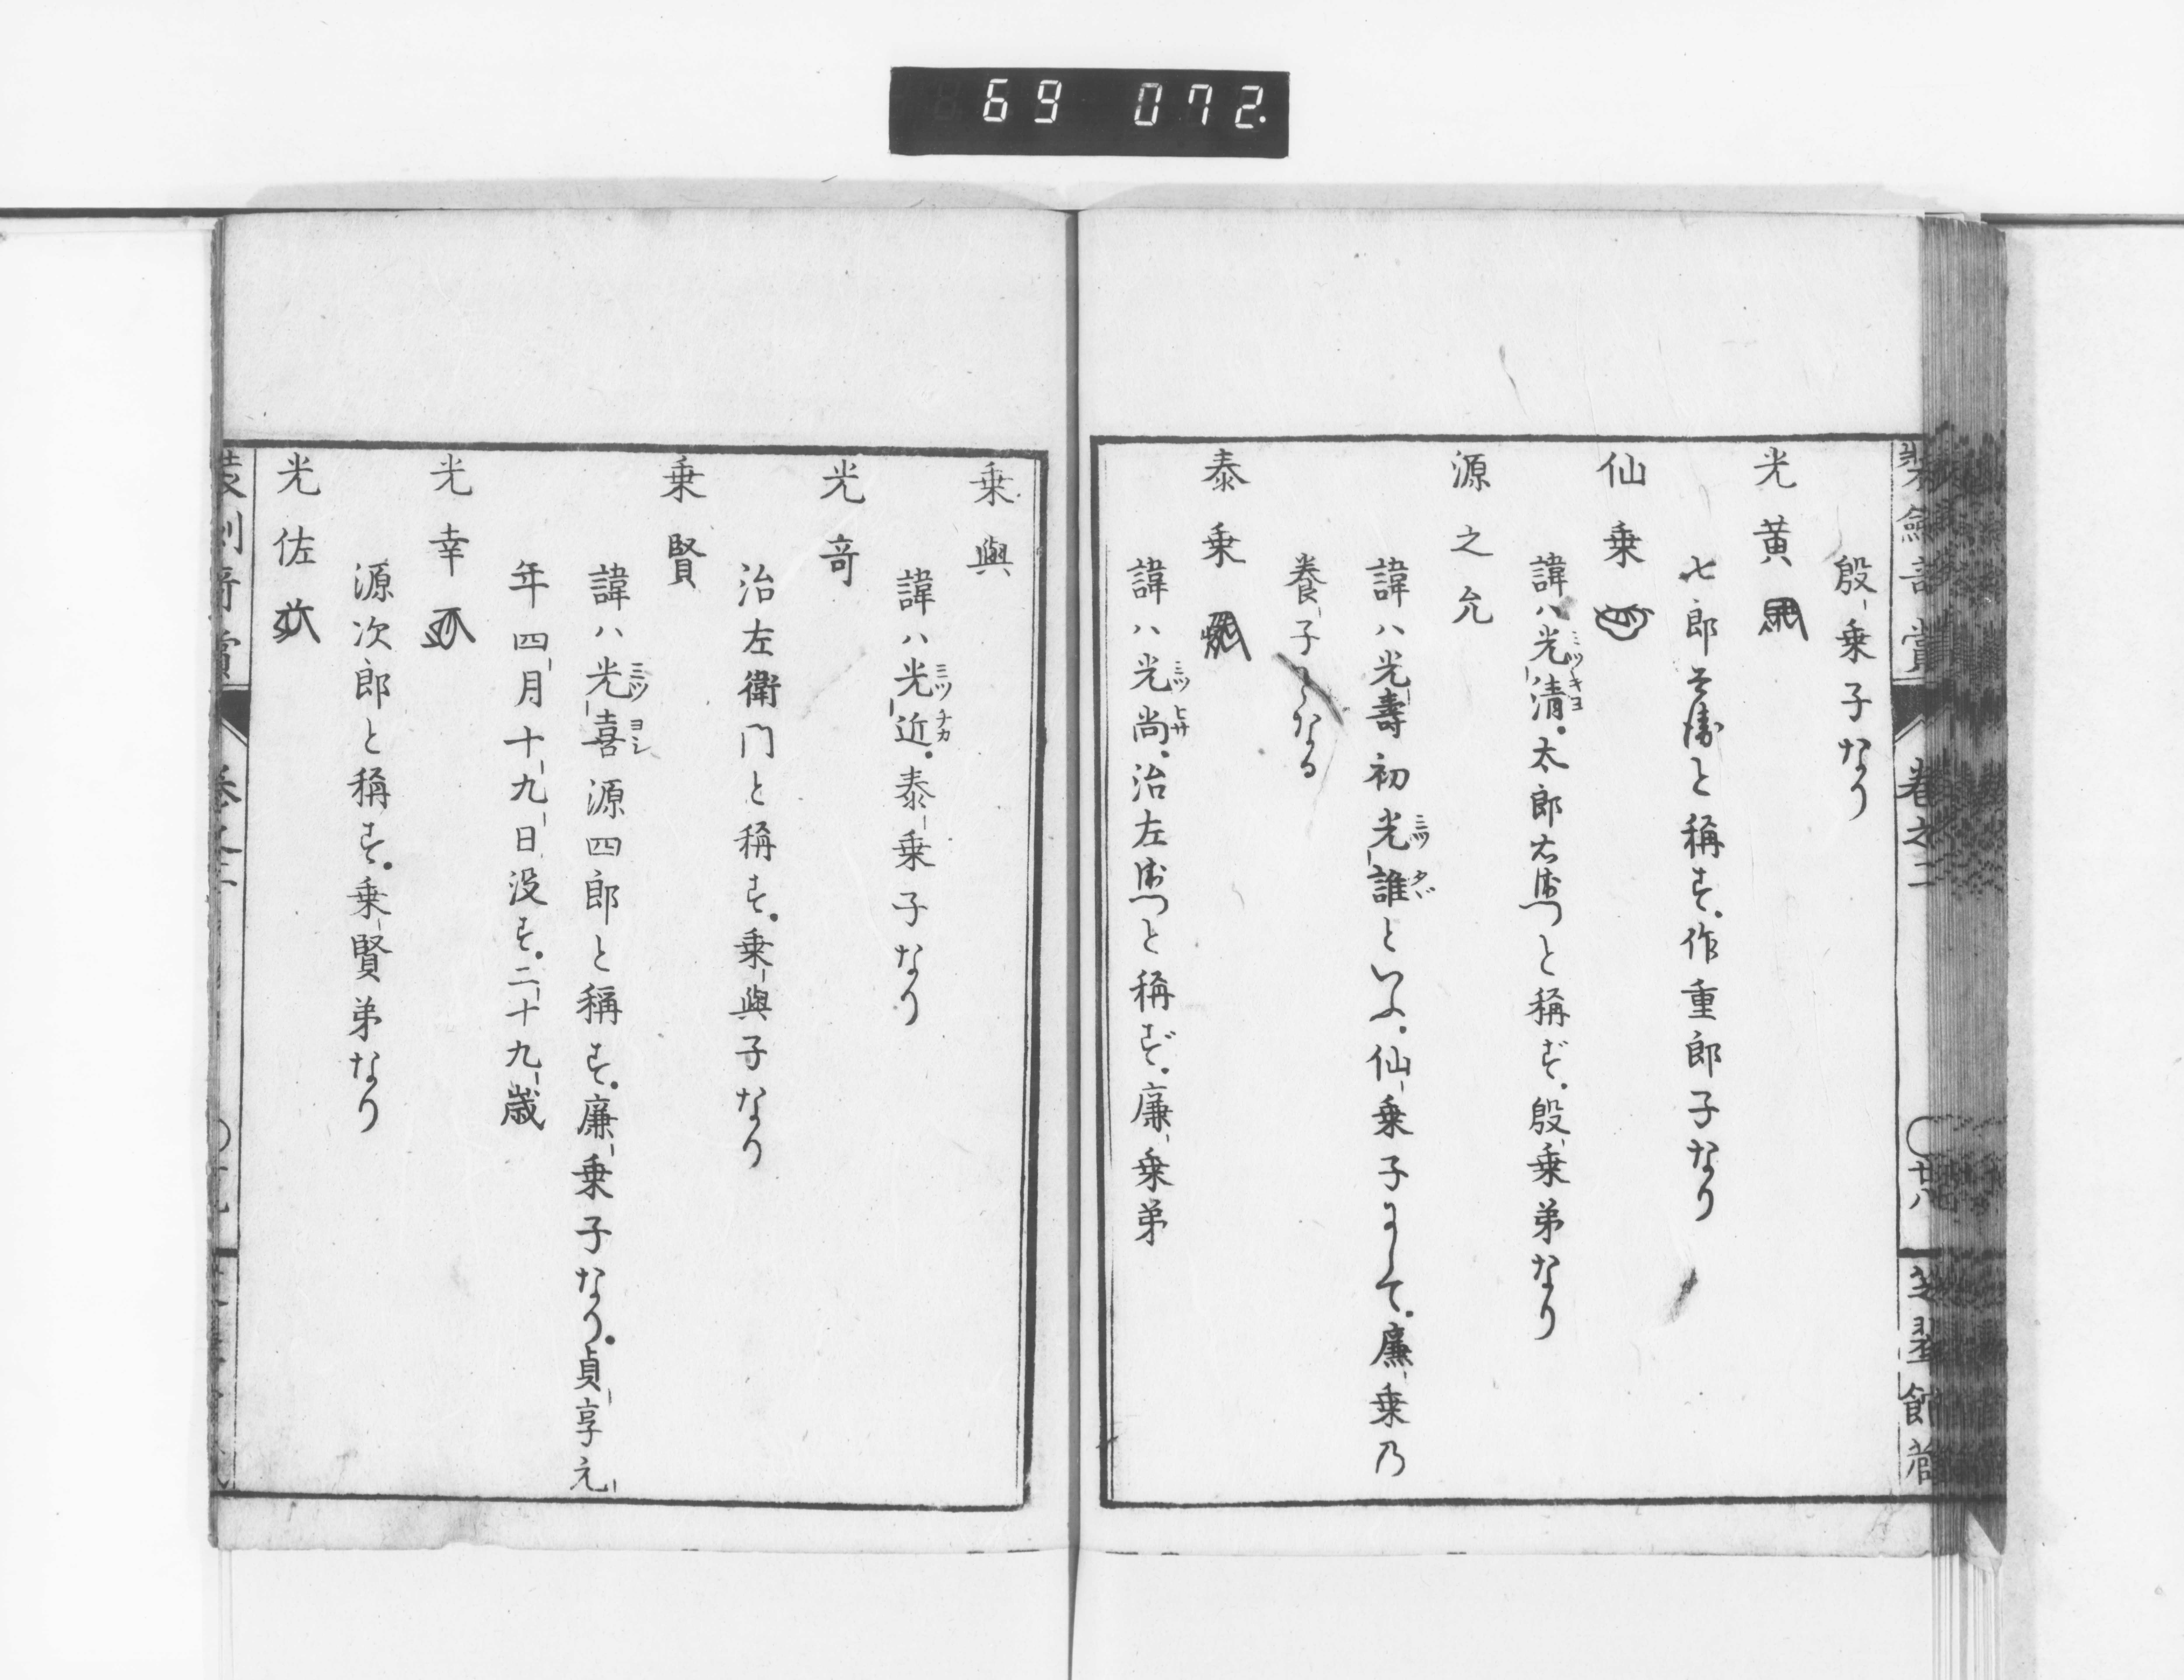 69 072.
殷乗子なり
光黄
七郎兵衛と稱す。作重郎子なり
仙乗
諱ハ光清。太郎右衛門と稱ず。殷乗弟なり
ミツキヨ
源之允
諱ハ光壽初光誰といふ。仙乗子にして。廉乗乃
ミツタヾ
養子となる
泰乗
諱ハ光尚。治左衛門と稱ず。廉乗弟
ミツヒサ
乗與
諱ハ光近。泰乗子なり
ミツチカ
光竒
治左衛門と稱す。乗與子なり
乗賢
諱ハ光喜源四郎と稱す。廉乗子なり。貞享元
ミツヨシ
年四月十九日没す。二十九歳
光幸
源次郎と稱す。乗賢弟なり
光佐
巻之二
廿八